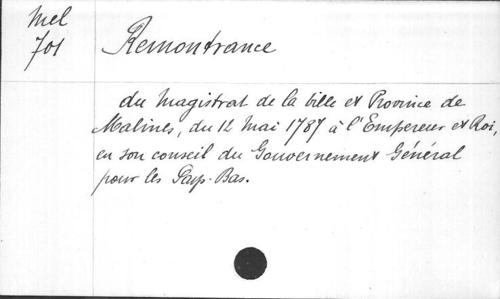 Mel
701
Remontrance
du Magistrat de la Ville et Province de
Malines, du 12 Mai 1787 à l'Empereur et Roi,
en son conseil du Gouvernement Général
pour les Pays-Bas.